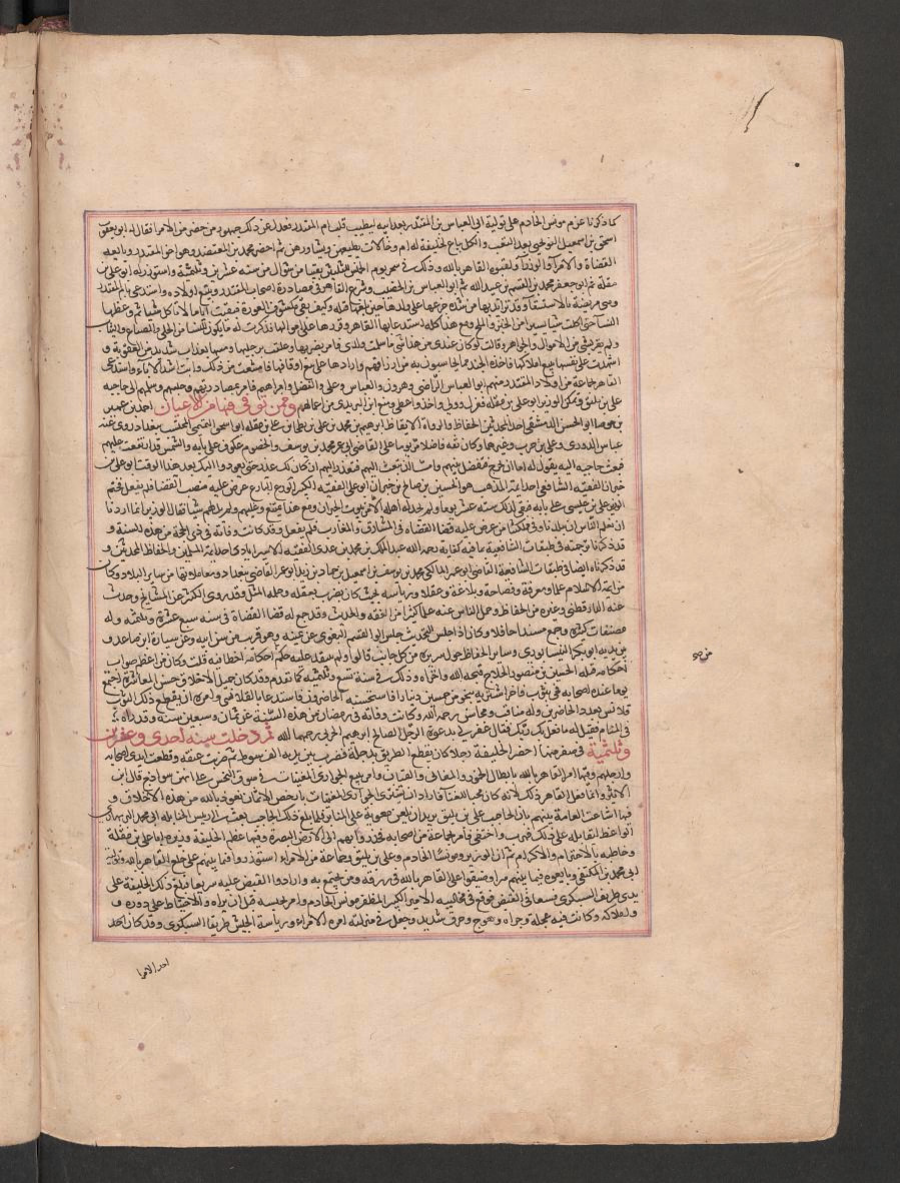 كما ذكرنا عزم مونس الخادم على تولية ابى العباس بن المقتدر بعد ابيه ليطيب قلب ام المقتدر فعدل عن ذلك جمهور من حضر من الامرا فقال له ابو يعقوب
اسحق بن اسمعيل النوبختى بعد التعب والنكد نبايع لخليفة له ام وخالات يطيعهن ويشاورهن ثم احضر محمد بن المعتضد وهو اخو المقتدر وبايعه
القضاة والامرآ والوزرآ ولقبوه القاهر بالله وذلك فى سحر يوم الخميس لليلتين بقيتا من شوال من سنه عشرين وثلثمئة واستوزر له ابو على بن
مقلة ثم ابو جعفر محمد بن القسم بن عبيد الله ثم ابو العباس بن الخصيب وشرع القاهر فى مصادرة اصحاب المقتدر وتتبع اولاده واستدعى بام المقتدر
وهى مريضة بالاستسقآ وقد تزايد بها من شدة جزعها على ولدها حين بلغها قتله وكيف بقى مكشوف العورة فبقيت اياما لا تاكل شيا ثم وعظها
النسآ حتى اكلت شيا يسيرا من الخبز والملح ومع هذا كله استدعا بها القاهر وقررها على اموالها فذكرت له ما يكون للنسا من الحلى والصباغ والثياب
ولم يقر بشى من الاموال والجواهر وقالت لو كان عندى من هذا شى ما سلمت ولدى فامر بضربها وعلقت برجليها ومسها بعذاب شديد من العقوبة و
اشهدت على نفسها ببيع املاكها فاخذه الجند مما يحاسبون به من ارزاقهم وارادها على بيع اوقافها فامتنعت من ذلك وابت اشد الاباء واستدعى
القاهر جماعة من اولاد المقتدر منهم ابو العباس الراضى وهرون والعباس وعلى والفضل وابراهيم فامر بمصادرتهم وحبسهم وسلمهم الى حاجبه
على بن بليق وتمكن الوزير ابو على بن مقلة فعزل وولى واخذ واعطى ومنع ابن البريدى من اعمالهم وممن توفى فيها من الاعيان احمد بن عمير
بن جوصا ابو الحسن الدمشقى احد المحدثين الحفاظ والرواة الايقاظ ابرهيم بن محمد بن على بن بطحا بن على بن مقلة ابو اسحق التميمى المحتسب ببغداد روى عن
عباس الدورى وعلى بن حرب وغيرهما وكان ثقه فاضلا مر يوما على القاضى ابى عمر محمد بن يوسف والخصوم عكوف على بابه والشمس قد ارتفعت عليهم
فبعث حاجبه اليه يقول له اما ان تخرج فتفصل بينهم واما ان تبعث اليهم فتعتذر اليهم ان كان لك عذر حتى يعودوا اليك بعد هذا الوقت ابو على بن
خيران الفقيه الشافعى احد ايمة المذهب هو الحسين بن صالح بن خيران ابو على الفقيه الكبير الورع البارع عرض عليه منصب القضا فلم يفعل فختم
الوزير على بن عيسى على بابه فبقى لذلك سته عشر يوما ولم يجد له اهله الا من بيوت الجيران ومع هذا يمتنع عليهم ولم يل لهم شيا فقال الوزير انما اردنا
ان نعلم الناس ان ببلدنا وفى مملكتنا من عرض عليه قضا القضاه فى المشارق والمغارب فلم يفعل وقد كانت وفاته فى ذى الحجة من هذه السنة و
قد ذكرنا ترجمته فى طبقات الشافعية ما فيه كفايه رحمه الله عبد الملك بن محمد بن عدى الفقيه الاسترابادى احد ايمة المسلمين والحفاظ المحدثين و
قد ذكرناه ايضا فى طبقات الشافعة القاضى ابو عمر المالكى محمد بن يوسف بن اسمعيل بن حماد بن زيد ابو عمر القاضى ببغداد ومعاملاتها من ساير البلاد وكان
من ايمة الاسلام علما ومعرفة وفصاحة وبلاغة وعقلا ورياسه بحيث كان يضرب بعقله وحلمه المثل وقد روى الكثير عن المشايخ وحدث
عنه الدارقطنى وغيره من الحفاظ وحمل الناس عنه علما كثيرا من الفقه والحديث وقد جمع له قضا القضاة فى سنه سبع عشرة وثلثمئه وله
مصنفات كثيرة وجمع مسندا حافلا وكان اذا جلس للتحديث جلس ابو القسم البغوى عن يمينه وهو قريب من سن ابيه وعن يساره ابن صاعد و
بين يديه ابو بكر النيسابورى وساير الحفاظ حول سريره من كل جانب قالوا ولم ينتقد عليه حكم من احكامه اخطا فيه قلت وكان من اعظم صواب
احكامه قتله الحسين بن منصور الحلاج قبحه الله واخزاه وذلك فى سنة تسع وثلثمئة كما تقدم وقد كان جميل الاخلاق حسن المعاشرة اجتمع
يوما عنده اصحابه فجى بثوب فاخر اشترى به بنحو من خمسين دينارا فاستحسنه الحاضرون فاستدعا بالقلانسى وامره ان يقطع ذلك الثوب
قلانس بعدد الحاضرين وله مناقب ومحاسن رحمه الله وكانت وفاته فى رمضان من هذه السنة عن ثمان وسبعين سنه وقد راه
فى المنام فقيل له ما فعل بك ربك فقال غفر لى بدعوة الرجل الصالح ابرهيم الحربى رحمهما الله ثم دخلت سنه احدى وعشرين
وثلثمئة فى صفر منها احضر الخليفة رجلا كان يقطع الطريق بدجلة فضرب بين يديه الف سوط ثم ضربت عنقه وقطعت ايدى اصحابه
وارجلهم وفيها امر القاهر بالله بابطال الخمور والمغانى والقيان وامر ببيع الجوارى المغنيات فى سوق النخس على انهن سواذج قال ابن
الاثير وانما فعل القاهر ذلك لانه كان محبا للغنآ فاراد ان يشترى الجوارى المغنيات بارخص الاثمان نعوذ بالله من هذه الاخلاق و
فيها اشاعت العامة بينهم بان الحاجب على بن بليق يريد ان يلعن معوية على المنابر فلما بلغ ذلك الحاجب بعث الى رئيس الحنابله الى محمد البربهارى
الواعظ ليقابله على ذلك فهرب واختفى فامر بجماعة من اصحابه فحدر وا بهم الى الارض البصرة وفيها عظم الخليفة وزيره ابا على بن مقلة
وخاطبه بالاحترام والاكرام ثم ان الوزير ومونسا الخادم وعلى بن بليق وجماعة من الامراء استوروا فيما بينهم على خلع القاهر بالله وتولية
ابى محمد بن المكتفى وبايعوه فيما بينهم سرا وضيقوا على القاهر بالله فى رزقه ومن يجتمع به وارادوا القبض عليه سريعا فبلغ ذلك الخليفة على
يدى طريف السبكرى فسعا فى القبض فوقع فى مخاليبه الامير الكبير المظفر مونس الخادم وامر بحبسه قبل ان يراه والاحتياط على دوره و
واملاكه وكانت فيه عجلة وجراه وهوج وخرق شديد وجعل فى منزلته امره الامراء ورياسة الجيش طريفا السبكرى وقد كان احد
احد الامرا